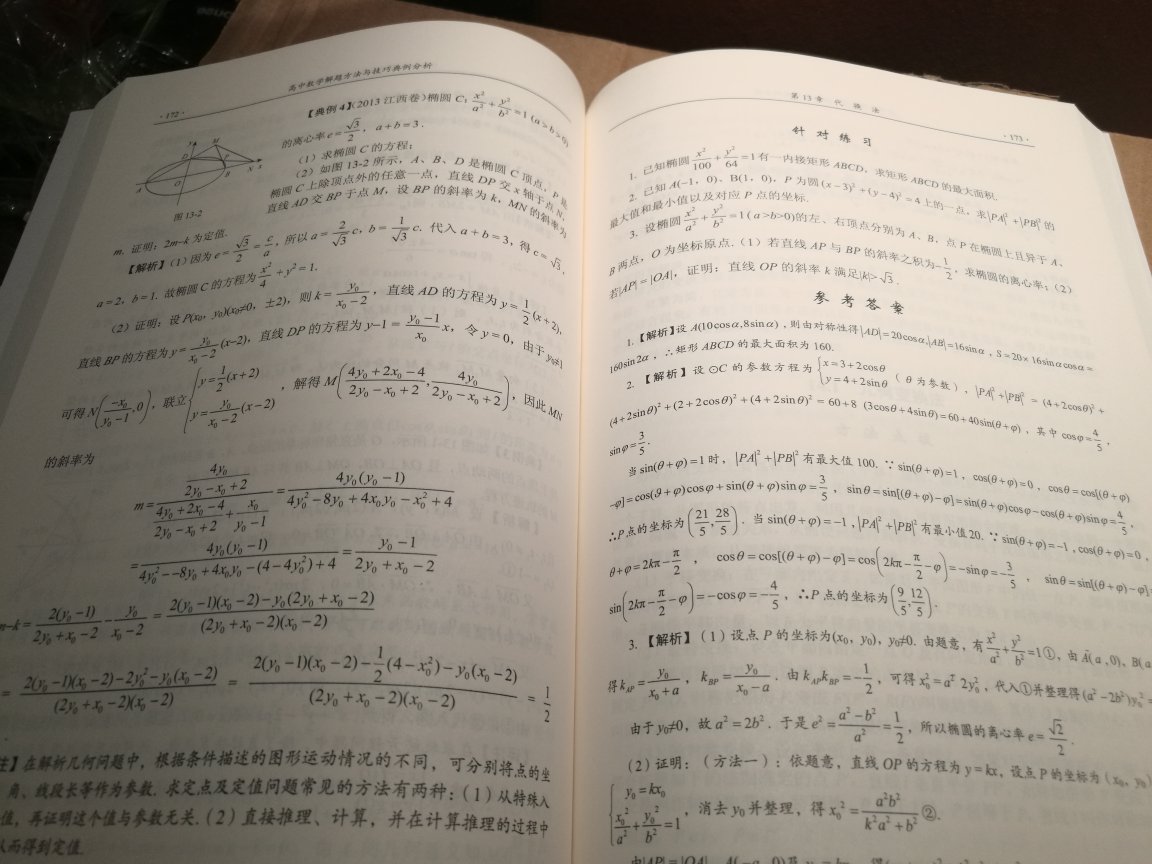 高中数学解题方法与技巧典例分析
·172·
【典例 4】(2013 江西卷)椭圆 C: x²/a² + y²/b² =1 (a>b>0)
的离心率 e= √3/2, a+b=3.
(1) 求椭圆 C 的方程;
(2) 如图 13-2 所示, A、B、D 是椭圆 C 顶点, P 是
椭圆 C 上除顶点外的任意一点, 直线 DP 交 x 轴于点 N,
直线 AD 交 BP 于点 M, 设 BP 的斜率为 k, MN 的斜率为
图 13-2
m. 证明: 2m-k 为定值.
【解析】(1) 因为 e= √3/2 = c/a, 所以 a= 2/√3 c, b= 1/√3 c. 代入 a+b=3, 得 c=√3,
a=2, b=1. 故椭圆 C 的方程为 x²/4 +y²=1.
(2) 证明: 设 P(x₀, y₀)(x₀≠0, ±2), 则 k= y₀/(x₀-2), 直线 AD 的方程为 y= 1/2 (x+2),
直线 BP 的方程为 y= y₀/(x₀-2) (x-2), 直线 DP 的方程为 y-1= (y₀-1)/x₀ x, 令 y=0, 由于 y₀≠1
可得 N(-x₀/(y₀-1), 0), 联立 { y= 1/2 (x+2) y= y₀/(x₀-2) (x-2) , 解得 M( (4y₀+2x₀-4)/(2y₀-x₀+2), 4y₀/(2y₀-x₀+2) ), 因此 MN
的斜率为
m= (4y₀/(2y₀-x₀+2)) / ((4y₀+2x₀-4)/(2y₀-x₀+2) + x₀/(y₀-1)) = 4y₀(y₀-1)/(4y₀²-8y₀+4x₀y₀-x₀²+4)
= 4y₀(y₀-1)/(4y₀²--8y₀+4x₀y₀-(4-4y₀²)+4) = (y₀-1)/(2y₀+x₀-2)
m-k= 2(y₀-1)/(2y₀+x₀-2) - y₀/(x₀-2) = (2(y₀-1)(x₀-2)-y₀(2y₀+x₀-2))/((2y₀+x₀-2)(x₀-2))
= (2(y₀-1)(x₀-2)-2y₀²-y₀(x₀-2))/((2y₀+x₀-2)(x₀-2)) = (2(y₀-1)(x₀-2)- 1/2 (4-x₀²)-y₀(x₀-2))/((2y₀+x₀-2)(x₀-2)) = 1/2
注】在解析几何问题中, 根据条件描述的图形运动情况的不同, 可分别将点的坐
角、线段长等作为参数. 求定点及定值问题常见的方法有两种: (1) 从特殊入
值, 再证明这个值与参数无关. (2) 直接推理、计算, 并在计算推理的过程中
从而得到定值.
第 13 章 代 换 法
·173·
针 对 练 习
1. 已知椭圆 x²/100 + y²/64 =1 有一内接矩形 ABCD, 求矩形 ABCD 的最大面积.
2. 已知 A(-1, 0)、B(1, 0), P 为圆 (x-3)²+(y-4)²=4 上的一点, 求|PA|²+|PB|² 的
最大值和最小值以及对应 P 点的坐标.
3. 设椭圆 x²/a² + y²/b² =1 ( a>b>0)的左、右顶点分别为 A、B, 点 P 在椭圆上且异于 A、
B 两点, O 为坐标原点. (1) 若直线 AP 与 BP 的斜率之积为- 1/2, 求椭圆的离心率; (2)
若|AP|=|OA|, 证明: 直线 OP 的斜率 k 满足|k|>√3.
参 考 答 案
1.【解析】设 A(10cosα,8sinα), 则由对称性得|AD|=20cosα,|AB|=16sinα, S=20×16sinαcosα=
160sin2α, ∴矩形 ABCD 的最大面积为 160.
2. 【解析】设 ⊙C 的参数方程为 { x=3+2cosθ y=4+2sinθ ( θ 为参数), |PA|²+|PB|² = (4+2cosθ)²+
(4+2sinθ)²+(2+2cosθ)²+(4+2sinθ)²=60+8 (3cosθ+4sinθ)=60+40sin(θ+φ), 其中 cosφ= 4/5,
sinφ= 3/5.
当 sin(θ+φ)=1 时, |PA|²+|PB|² 有最大值 100. ∵ sin(θ+φ)=1, cos(θ+φ)=0, cosθ=cos[(θ+φ)
-φ]=cos(θ+φ)cosφ+sin(θ+φ)sinφ= 3/5, sinθ=sin[(θ+φ)-φ]=sin(θ+φ)cosφ-cos(θ+φ)sinφ= 4/5,
∴P 点的坐标为 (21/5, 28/5). 当 sin(θ+φ)=-1, |PA|²+|PB|² 有最小值20. ∵ sin(θ+φ)=-1, cos(θ+φ)=0,
θ+φ=2kπ- π/2, cosθ=cos[(θ+φ)-φ]=cos(2kπ- π/2 -φ)=-sinφ=- 3/5, sinθ=sin[(θ+φ)-φ]=
sin(2kπ- π/2 -φ)=-cosφ=- 4/5, ∴P 点的坐标为 (9/5, 12/5).
3. 【解析】(1) 设点 P 的坐标为(x₀, y₀), y₀≠0. 由题意, 有 x²/a² + y²/b² =1①, 由 A(a ,0), B(a
得 k_AP= y₀/(x₀+a), k_BP= y₀/(x₀-a). 由 k_AP k_BP=- 1/2, 可得 x₀²=a² 2y₀², 代入①并整理得 (a²-2b²)y₀²=
由于 y₀≠0, 故 a²=2b². 于是 e²= (a²-b²)/a² = 1/2, 所以椭圆的离心率 e= √2/2.
(2) 证明: (方法一): 依题意, 直线 OP 的方程为 y=kx, 设点 P 的坐标为 (x₀, y₀)
{ y₀=kx₀ x₀²/a² + y₀²/b² =1 , 消去 y₀ 并整理, 得 x₀²= a²b²/(k²a²+b²) ②.
由|AP|=|OA|, A(-a, 0)及